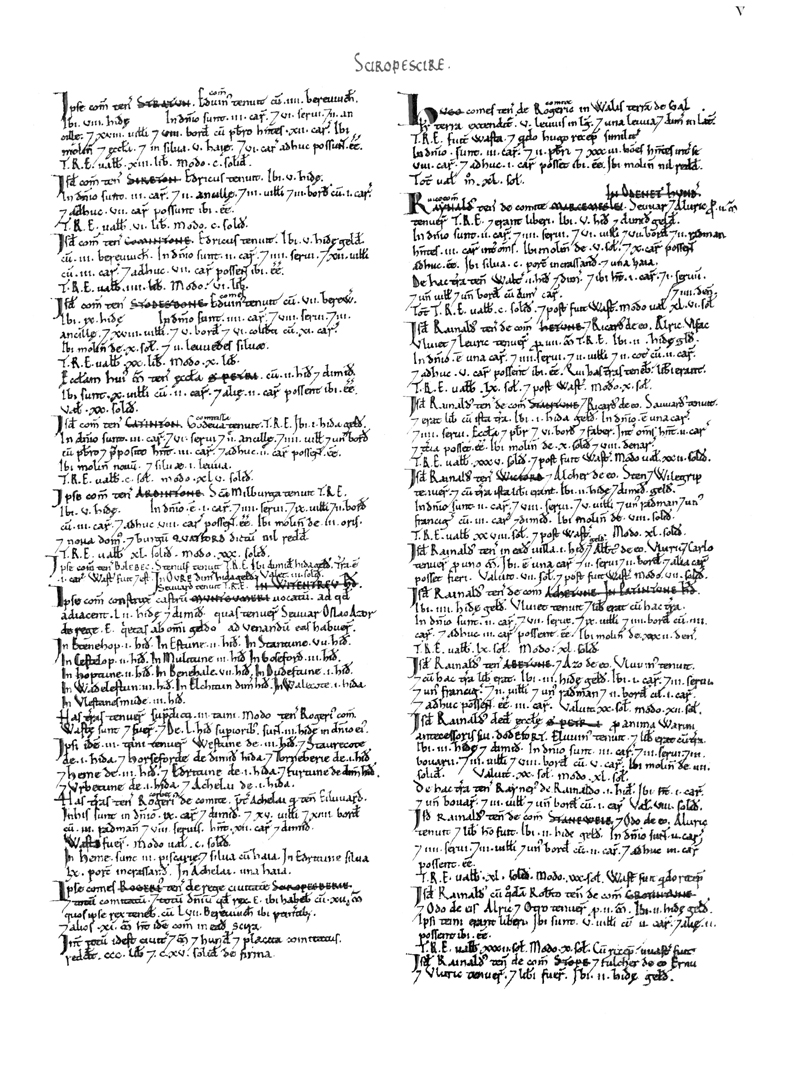 V
SCIROPESCIRE.
Ipse com ten STRATUN. Eduin com tenuit cū .IIII. bereuuich.
Ibi .VIII. hidę In dnio sunt .III. car. 7 VI. serui 7 II. an
cille. 7 XVIII. uilli 7 VIII. bord cū pbro hntes .XII. car. Ibi
molin 7 eccła. 7 in silua .V. haię. 7 VI. car adhuc possunt .ēē.
T.R.E. ualb .XIII. lib. Modo .C. solid.
Isd com ten Edricus tenuit. Ibi .V. hidę.
In dnio sunt .III. car. 7 II. ancillę. 7 III. uilli 7 III. bord cū .I. car.
7 adhuc .VII. car possunt ibi .ēē.
T.R.E. ualb .VI. lib. Modo .C. solid.
Isd com ten Edricus tenuit. Ibi .V. hidę geld
cū .III. bereuuich. In dnio sunt .III. car. 7 IIII. serui. 7 XII. uilli
cū .III. car. 7 adhuc .VII. car possent ibi .ēē.
T.R.E. ualb .IIII. lib. Modo .VI. lib.
Isd com ten STODESDONE. Eduin com tenuit cū .VII. berew.
Ibi .IX. hidę In dnio sunt .IIII. car. 7 VIII. serui. 7 III.
ancillę. 7 XXIII. uilli. 7 V. bord 7 VI. coliberti cū .XI. car.
Ibi molin de .X. sol. 7 II. leuuedes siluæ.
T.R.E. ualb .XX. lib. Modo .X. lib.
Ecclam hui m ten eccła S PETRI. cū .II. hid 7 dimid.
Ibi sunt .X. uilli cū .II. car. 7 alię .II. car possent ibi .ēē.
Val .XX. solid.
Isd com ten CATINTON. Godeua comitissa tenuit. T.R.E. Ibi .I. hida geld.
In dnio sunt .II. car. 7 VI. serui 7 II. ancillę. 7 IIII. uilli 7 un bord
cū pbro 7 pposito hnt .III. car. 7 adhuc .II. car possent .ēē.
Ibi molin nouū. 7 siluæ .I. leuuia.
T.R.E. ualb .C. sol. Modo .XL.V. solid.
Ipse com ten ARDINTONE. Sca Milburga tenuit T.R.E.
Ibi .V. hidę. In dnio .ē .I. car. 7 IIII. serui. 7 IX. uilli 7 II. bord
cū .III. car. 7 adhuc VIII. car possent .ēē. Ibi molin de .III. oris.
T.R.E. ualb .XL. solid. Modo .XXX. solid.
Ipse com construx castru MUNTGUMERI uocatū. ad qd
adiacent .L.II. hidę 7 dimid. quas tenuer Seuuar Oslac Azor
de rege .E. quietas ab omi geldo ad uenandū eas habuer.
In Benehop .I. hid. In Estune .II. hid. In Stantune .VII. hid.
In Castelop .II. hid. In Multune .III. hid In Hoseford .III. hid.
In Hoptune .III. hid. In Benehale .VII. hid. In Dudeftune .I. hid.
In Wadelestun .III. hid. In Elchitun dim hid. In Walcote .I. hida
In Ulestanesmude .III. hid.
Has tras tenuer supdicti .III. taini. Modo ten Rogeri com.
Wastę sunt 7 fuer. De .L. hid superiorib sunt .III. hidę in dnio ei.
Ipsi ide .III. taini tenuer Westune de .III. hid. 7 Staurecote
de .I. hida. 7 Horseforde de dimid hida 7 Torneberie de .I. hid
7 Heme de .III. hid. 7 Edritune de .I. hida. 7 Furtune de dim hid.
7 Urbetune de .I. hida. 7 Achelai de .I. hida.
Has tras ten Rogeri corbet de comite. pt Achelai q ten Eilward.
In his sunt in dnio .IX. car 7 dimid. 7 XV. uilli 7 XIII. bord
cū .III. radman 7 VIII. seruis. hnt .XII. car 7 dimid.
Wastę fuer. Modo ual .C. solid.
In Heme sunt .III. piscarię. 7 silua cū haia. In Edritune silua
.LX. porc incrassand. In Achelai una haia.
Ipse comes ROGERI ten de rege ciuitate SCIROPESBERIE.
7 totū comitatū. 7 totū dniū qd rex .E. ibi habeb cū .XII. m
quos ipse rex teneb cū .LVII. Bereuuich ibi ptinetib.
7 alios .XI. m ht ide com in ead scira.
Int totū idest ciuit 7 m 7 hund 7 placita comitatus.
reddt .CCC. lib 7 .C.XV. solid de firma.
HUGO comes ten de Rogerio comite in Walis terra de GAL .
T.R.E. fuit wasta. 7 qdo Hugo recep similit
In dnio sunt .III. car. 7 II. pbri 7 XXX.VI. hoes hntes int se
VIII. car. 7 adhuc .I. car posset ibi .ēē. Ibi molin nil redd.
Tot ual m .XL. sol.
IN ODENET HUND.
RAYNALD uicecom ten de comite Seuuar 7 Aluric p .II. m
tenuer T.R.E. 7 erant liberi. Ibi .V. hid 7 dimid geld.
In dnio sunt .II. car. 7 IIII. serui. 7 VI. uilli 7 VII. bord 7 II. radman
hntes .III. car int oms. Ibi molin de .V. sol. 7 .X. car possent
adhuc .ēē. Ibi silua .C. porc incrassand. 7 una haia.
De hac tra ten Walt .I. hid 7 dim. 7 ibi ht .I. car. 7 II. serui.
7 un uill 7 un bord cū dim car.
Tot T.R.E. ualb .XL. sol. 7 post fuit Wast. Modo ual .XL.VI. sol.
Isd Rainald ten de com LETONE. 7 Ricard de eo. Alric Uisac
Uluiet 7 Leuric tenuer p .IIII. m T.R.E. Ibi .II. hidę geld.
In dnio .ē una car. 7 IIII. serui. 7 II. uilli 7 II. cot cū .II. car.
7 adhuc .V. car possent ibi .ēē. Qui has tras teneb liberi erant.
T.R.E. ualb .LX. sol. 7 post Wast. Modo .X. sol.
Isd Rainald ten de com STANTUNE. 7 Ricard de eo. Sauuard tenuit.
7 erat lib cū ista tra. Ibi .I. hida geld. In dnio .ē una car.
7 IIII. serui. Eccła 7 pbr 7 VI. bord 7 faber. Int oms hnt .II. car
7 tcia posset .ēē. Ibi molin de .X. solid 7 VIII. denar.
T.R.E. ualb .XXX.V. solid. 7 post fuit Wast. Modo ual .XX.II. solid.
Isd Rainald ten WICFORD. 7 Alcher de eo. Sten 7 Wilegrip
tenuer. 7 cū tra ista libi erant. Ibi .II. hidę 7 dimid. geld.
In dnio sunt .II. car. 7 VIII. serui. 7 V. uilli 7 un radman 7 un
francig cū .III. car 7 dimid. Ibi molin de .VIII. solid.
T.R.E. ualb .XX.VIII. sol. 7 post Wast. Modo .XL. solid.
Isd Rainald ten in ead uilla .I. hid geld. 7 Albt de eo. Uluric 7 Carlo
tenuer p uno m. Ibi .ē una car 7 II. serui 7 II. bord 7 alia car
posset fieri. Valuit .VII. sol. 7 post fuit Wast. Modo .VII. solid.
.IIII. hidę geld. Uluiet tenuit 7 lib erat cū hac tra.
In dnio sunt .II. car. 7 VII. serui. 7 IX. uilli 7 IIII. bord cū .III.
car. 7 adhuc .III. car possent .ēē. Ibi molin de .XXX.II. den.
T.R.E. ualb .LX. sol. Modo .XL. solid.
Isd Rainald ten ABETUNE. 7 Azo de eo. Uluuin tenuit.
cū hac tra lib erat. Ibi .III. hidę geld. Ibi .I. car. 7 III. serui
7 un francig. 7 II. uilli 7 un radman 7 II. bord cū .I. car.
7 adhuc possent .ēē .III. car. Valuit .XX. sol. modo .XII. sol.
Isd Rainald ded eccłę S PETRI p anima Warini
antecessoris sui. DODEFORT. Eluuin tenuit. 7 lib erat cū tra.
Ibi .III. hidę 7 dimid. In dnio sunt .III. car. 7 III. serui 7 III.
bouarii. 7 III. uilli 7 VIII. bord cū .V. car. Ibi molin de .III.
solid. Valuit .XX. sol. modo .XL. sol.
De hac tra ten Rayner de Rainaldo .I. hid. Ibi ht .I. car.
7 un bouar. 7 III. uilli 7 un bord cū .I. car. Val .VIII. solid.
Isd Rainald ten de com STANEWEIE. 7 Odo de eo. Aluric
tenuit 7 lib ho fuit. Ibi .II. hidę geld. In dnio sunt .II. car.
7 IIII. serui. 7 III. uilli 7 un bord cū .II. car. 7 adhuc .III. car
possent .ēē.
T.R.E. ualb .XL. solid. Modo .XXX. sol. Wast fuit qdo recep.
Isd Rainald cū qda Robto ten de com
7 Odo de eis. Alric 7 Otro tenuer p .II. m. Ibi .II. hidę geld.
Ipsi taini erant liberi. Ibi sunt .V. uilli cū .II. car. 7 alię .II.
possent ibi .ēē.
T.R.E. ualb .XXX.II. sol. Modo .X. sol. Cū recep wasta fuit
Isd Rainald ten de com STOPE. 7 Fulcher de eo. Ernu
7 Uluric tenuer. 7 libi fuer. Ibi .II. hidę geld.